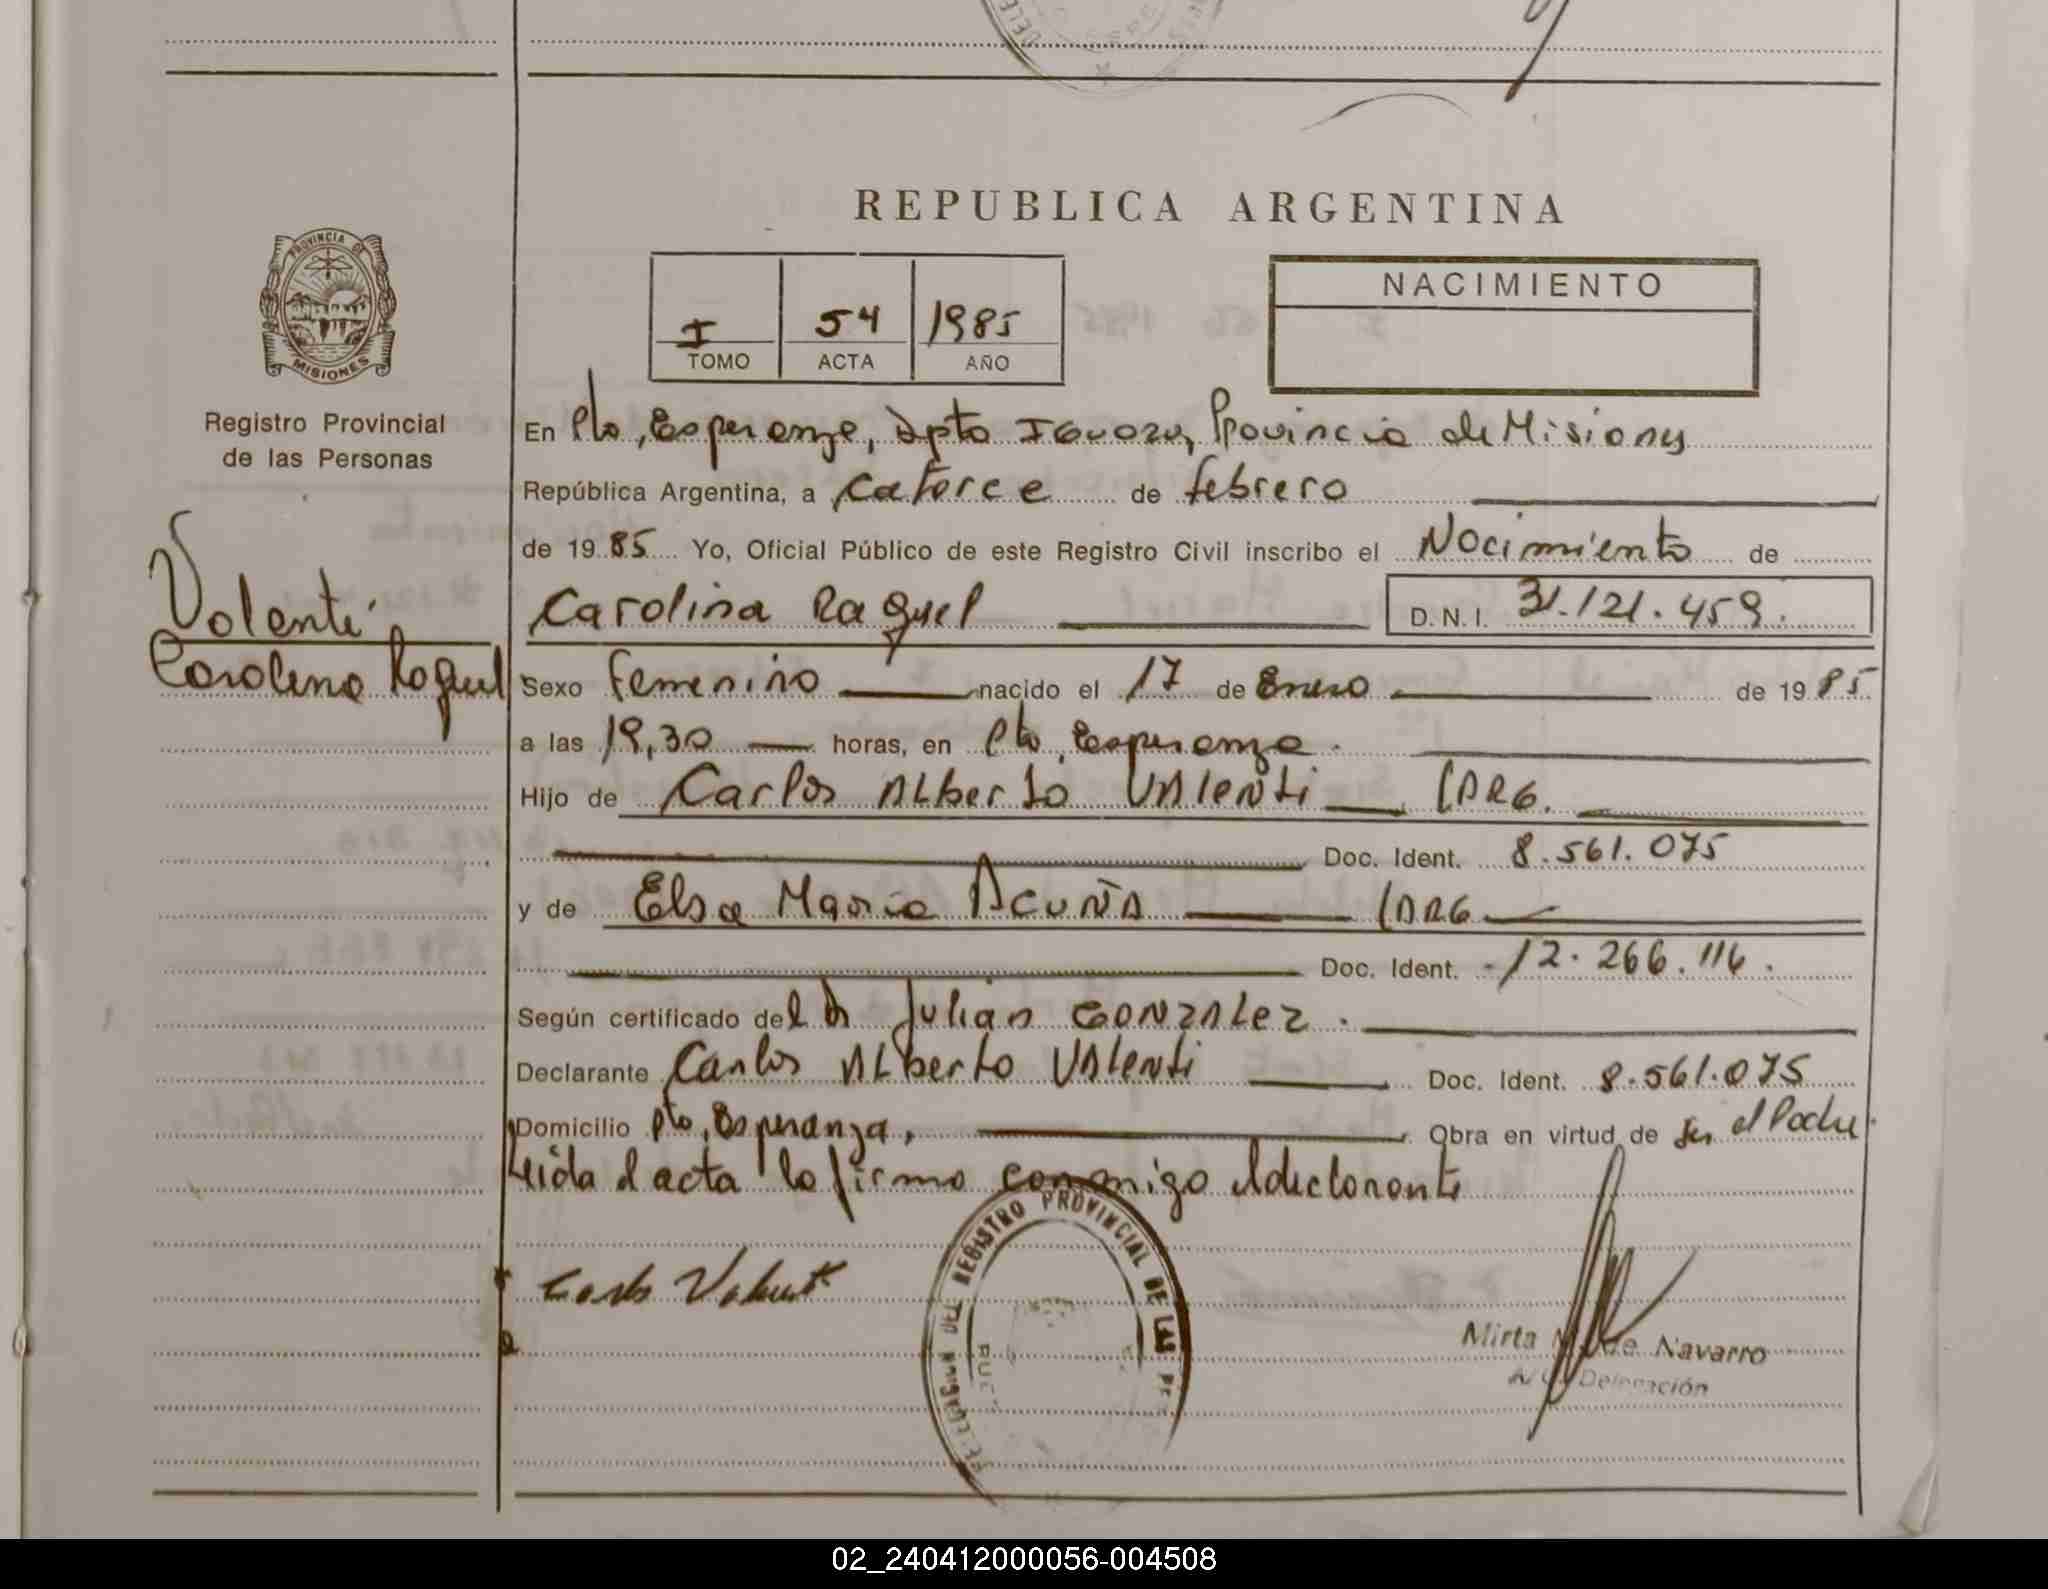 REPUBLICA ARGENTINA
PROVINCIA DE
MISIONES
Registro Provincial
de las Personas
I 54 1985
TOMO ACTA AÑO
NACIMIENTO
Valenti
Carolina Raquel
En Pto, Esperanza, Dpto Iguazu, Provincia de Misiones
República Argentina, a catorce de febrero
de 19 85 Yo, Oficial Público de este Registro Civil inscribo el Nacimiento de
Carolina Raquel D.N.I. 31.121.459.
Sexo Femenino nacido el 17 de Enero de 19 85
a las 19,30 horas, en Pto, Esperanza.
Hijo de Carlos Alberto Valenti (ARG.
Doc. Ident. 8.561.075
y de Elsa Maria Acuña (ARG
Doc. Ident. 12.266.116.
Según certificado del Dr Julian Gonzalez.
Declarante Carlos Alberto Valenti Doc. Ident. 8.561.075
Domicilio Pto, Esperanza, Obra en virtud de ser el Padre.
Leida el acta la firma conmigo el declarante
Carlos Valenti
DEL REGISTRO PROVINCIAL DE LAS
Mirta de Navarro
Delegación
02_240412000056-004508